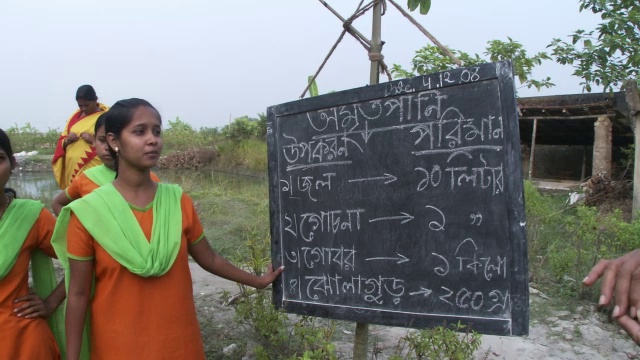 4.12.08
অমৃতপানি
উপকরণ পরিমান
১| জল → ১০ লিটার
২| গোচনা → ১ "
৩| গোবর → ১ কিলো
৪| ঝোলাগুড় → ২৫০ গ্রা